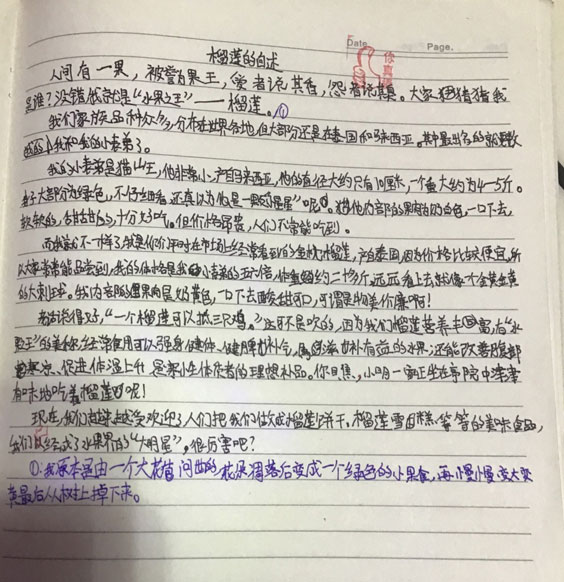 Date
Page.
你真
榴莲的自述
人间有一果，被誉为果王，爱者说其香，忍者说其臭。大家猜猜我
是谁？没错我就是“水果之王”——榴莲。①
我们家族品种众多分布在世界各地但大部分还是在泰国和马来西亚。其中最出名的就要数
我和我的小表弟了。
我的小表弟是猫山王，他非常小产自马来西亚，他的直径大约只有10厘米，一个重大约为4—5斤。
大部分为绿色，不仔细看还真以为他是一颗呢。猫他内部的果肉为白色，一口下去，
软软的，甜甘甘的，十分好吃。但价格昂贵，人们不常能吃到。
而我就不一样了我是你们平时在市场上经常看到的金枕榴莲，产自泰国，因为价格比较便宜，所
以大家常常能品尝到，我的体格是我小表弟的五六倍，体重约二十多斤远远看上去就像个金黄金黄
的大刺球。我内部的果肉呈奶黄色，一口下去酸甜可口，可谓是物美价廉啊！
俗话说得好，“一个榴莲可以抵三只鸡。”这可不是吹的，因为我们榴莲营养丰富，有“水
果王”的美称，经常食用可以强身健体、健脾补气，补有益的水果，还能改善腹部
寒凉、促进体温上升，是寒性体质者的理想补品。你且焦，小明一家正坐在亭院中津津
有味地吃着榴莲呢！
现在，我们越来越受欢迎了人们把我们做成榴莲饼干、榴莲雪糕等等的美味食品，
我们已经成了水果界的“大明星”，很厉害吧？
①：我原本是由一个大花苞问世的花朵凋落后变成一个绿色的小果食，再慢慢变大变
黄最后从树上掉下来。